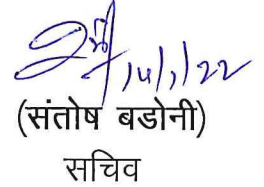 14/1/22
(संतोष बडोनी)
सचिव